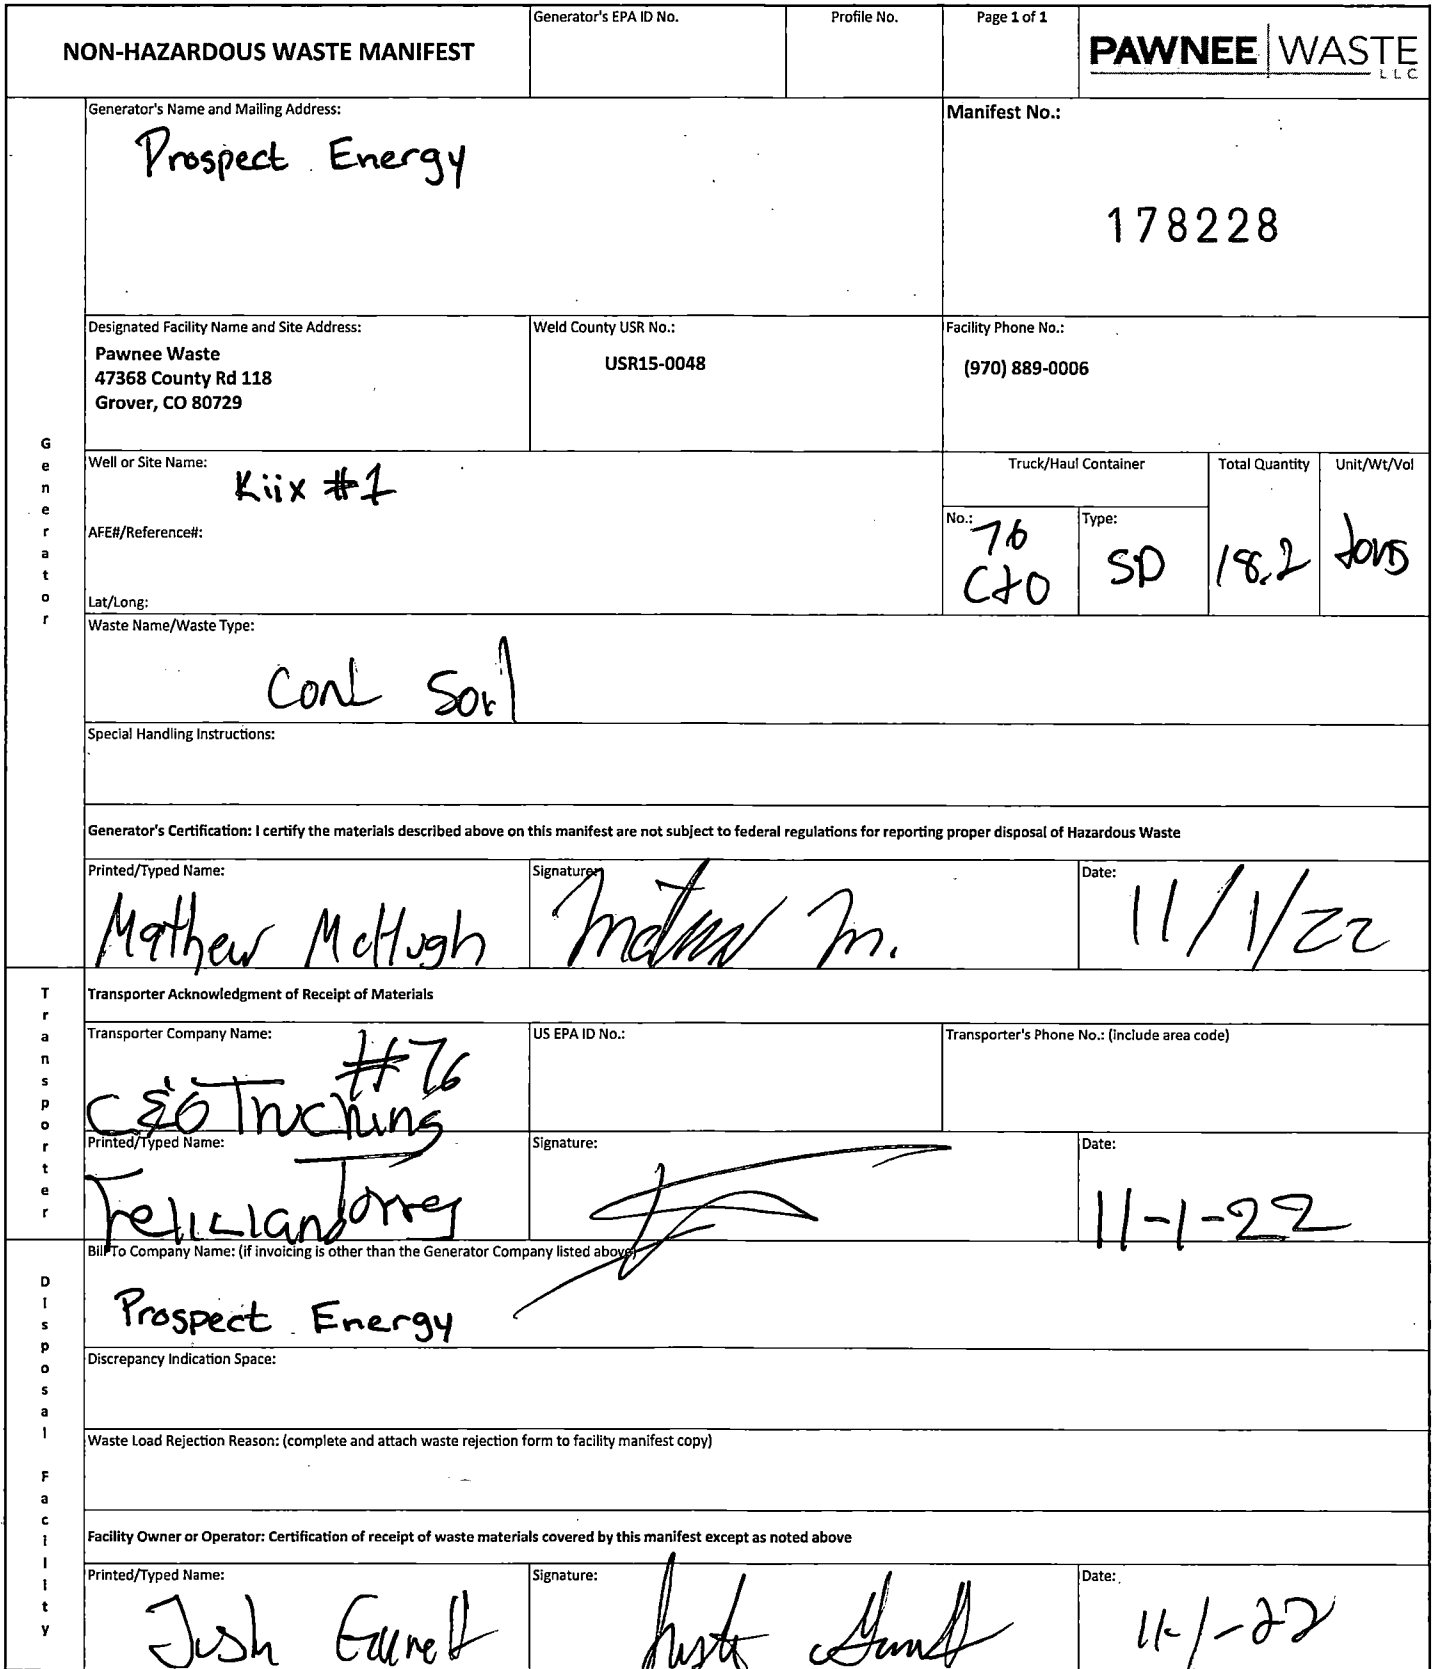 NON-HAZARDOUS WASTE MANIFEST
Generator's EPA ID No.
Profile No.
Page 1 of 1
PAWNEE WASTE
LLC
Generator's Name and Mailing Address:
Prospect Energy
Manifest No.:
178228
Designated Facility Name and Site Address:
Pawnee Waste
47368 County Rd 118
Grover, CO 80729
Weld County USR No.:
USR15-0048
Facility Phone No.:
(970) 889-0006
Generator
Well or Site Name:
Kiix #1
AFE#/Reference#:
Lat/Long:
Truck/Haul Container
No.:
76
C&O
Type:
SD
Total Quantity
18.2
Unit/Wt/Vol
tons
Waste Name/Waste Type:
Cont Soil
Special Handling Instructions:
Generator's Certification: I certify the materials described above on this manifest are not subject to federal regulations for reporting proper disposal of Hazardous Waste
Printed/Typed Name:
Mathew McHugh
Signature:
Date:
11/1/22
Transporter
Transporter Acknowledgment of Receipt of Materials
Transporter Company Name:
#76
C&O Trucking
US EPA ID No.:
Transporter's Phone No.: (include area code)
Printed/Typed Name:
Feliciano Torres
Signature:
Date:
11-1-22
Disposal Facility
Bill To Company Name: (if invoicing is other than the Generator Company listed above)
Prospect Energy
Discrepancy Indication Space:
Waste Load Rejection Reason: (complete and attach waste rejection form to facility manifest copy)
Facility Owner or Operator: Certification of receipt of waste materials covered by this manifest except as noted above
Printed/Typed Name:
Signature:
Date:
11-1-22